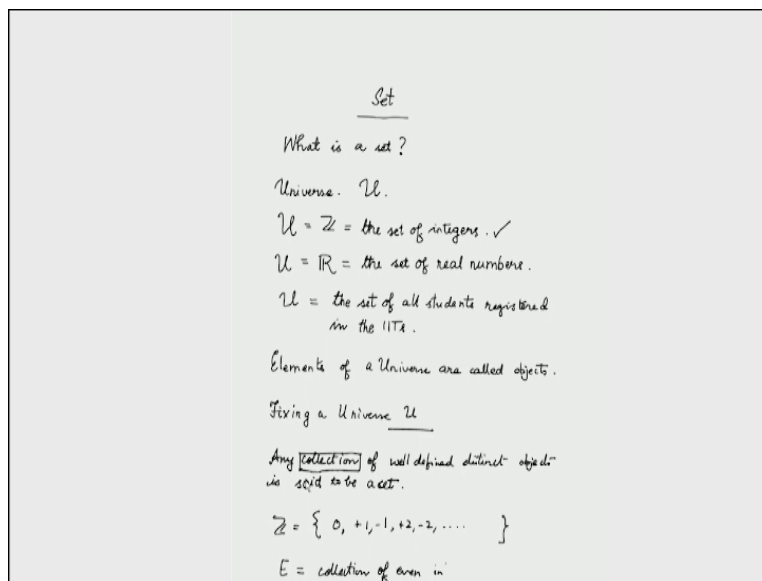 Set
What is a set?
Universe. U.
U = ℤ = the set of integers. ✓
U = ℝ = the set of real numbers.
U = the set of all students registered
in the IITs.
Elements of a Universe are called objects.
Fixing a Universe U
Any collection of well defined distinct objects
is said to be a set.
ℤ = { 0, +1, -1, +2, -2, .... }
E = collection of even in